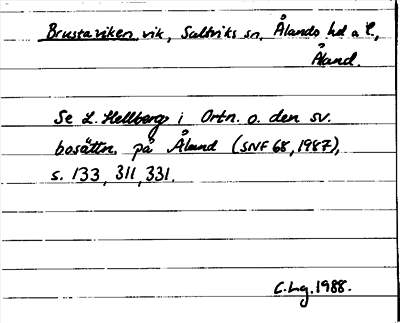 Brustaviken, vik, Saltviks sn, Ålands hd o l.,
Åland.
Se L. Hellberg i Ortn. o. den sv.
bosättn. på Åland (SNF 68, 1987),
s. 133, 311, 331.
C. Lg. 1988.